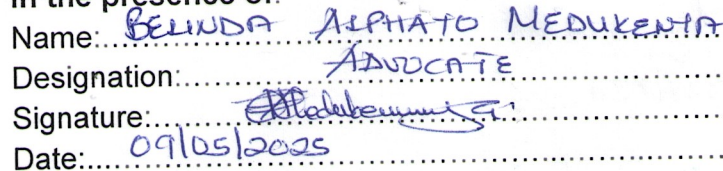 In the presence of:
Name: BELINDA ALPHATO MEDUKENYA
Designation: ADVOCATE
Signature:
Date: 09/05/2025